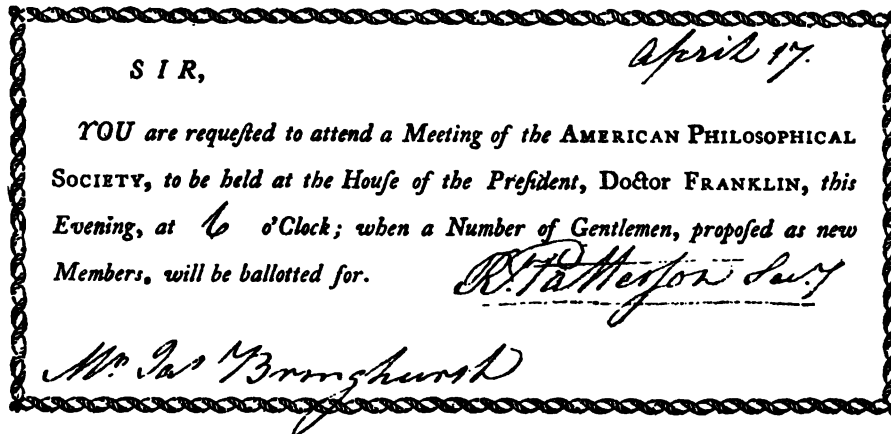 April 17.
S I R,
YOU are requeſted to attend a Meeting of the AMERICAN PHILOSOPHICAL
SOCIETY, to be held at the Houſe of the Preſident, Doctor FRANKLIN, this
Evening, at 6 o'Clock; when a Number of Gentlemen, propoſed as new
Members, will be ballotted for.
R. Patterſon Secy
Mr Jas Bringhurst